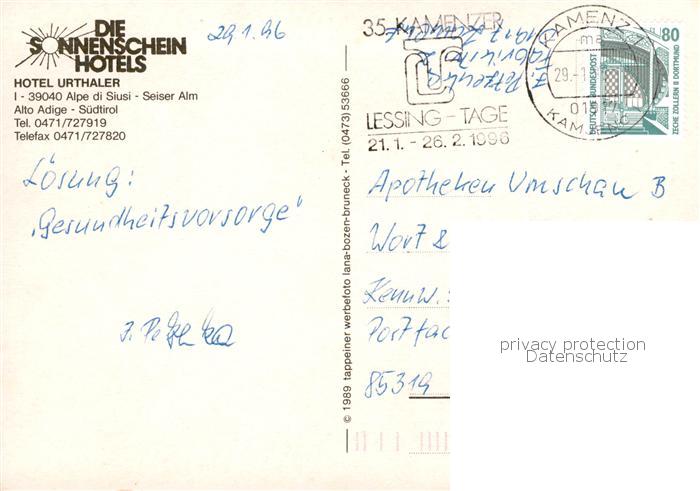 DIE
SONNENSCHEIN
HOTELS
HOTEL URTHALER
I - 39040 Alpe di Siusi - Seiser Alm
Alto Adige - Südtirol
Tel. 0471/727919
Telefax 0471/727820
29.1.96
Lösung:
"Gesundheitsvorsorge"
© 1989 tappeiner werbefoto lana-bozen-bruneck - Tel. (0473) 53666
35. KAMENZER
LESSING - TAGE
21.1. - 26.2. 1996
KAMENZ 1
29.-1.
KAMENZ
80
DEUTSCHE BUNDESPOST
ZECHE ZOLLERN II DORTMUND
Apotheken Umschau B
Wort &
Kennw.:
Postfac
85319
privacy protection
Datenschutz